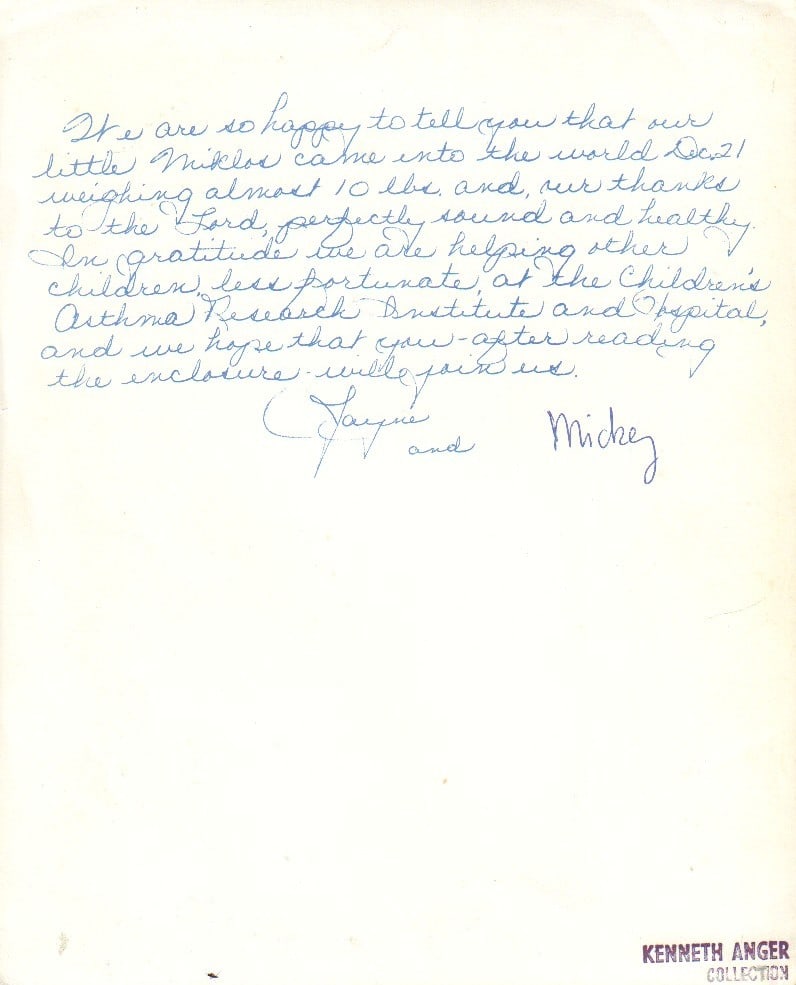 We are so happy to tell you that our
little Miklos came into the world Dec. 21
weighing almost 10 lbs. and, our thanks
to the Lord, perfectly sound and healthy.
In gratitude we are helping other
children, less fortunate, at the Children's
Asthma Research Institute and Hospital,
and we hope that you - after reading
the enclosure - will join us.
Jayne
and Mickey
KENNETH ANGER
COLLECTION